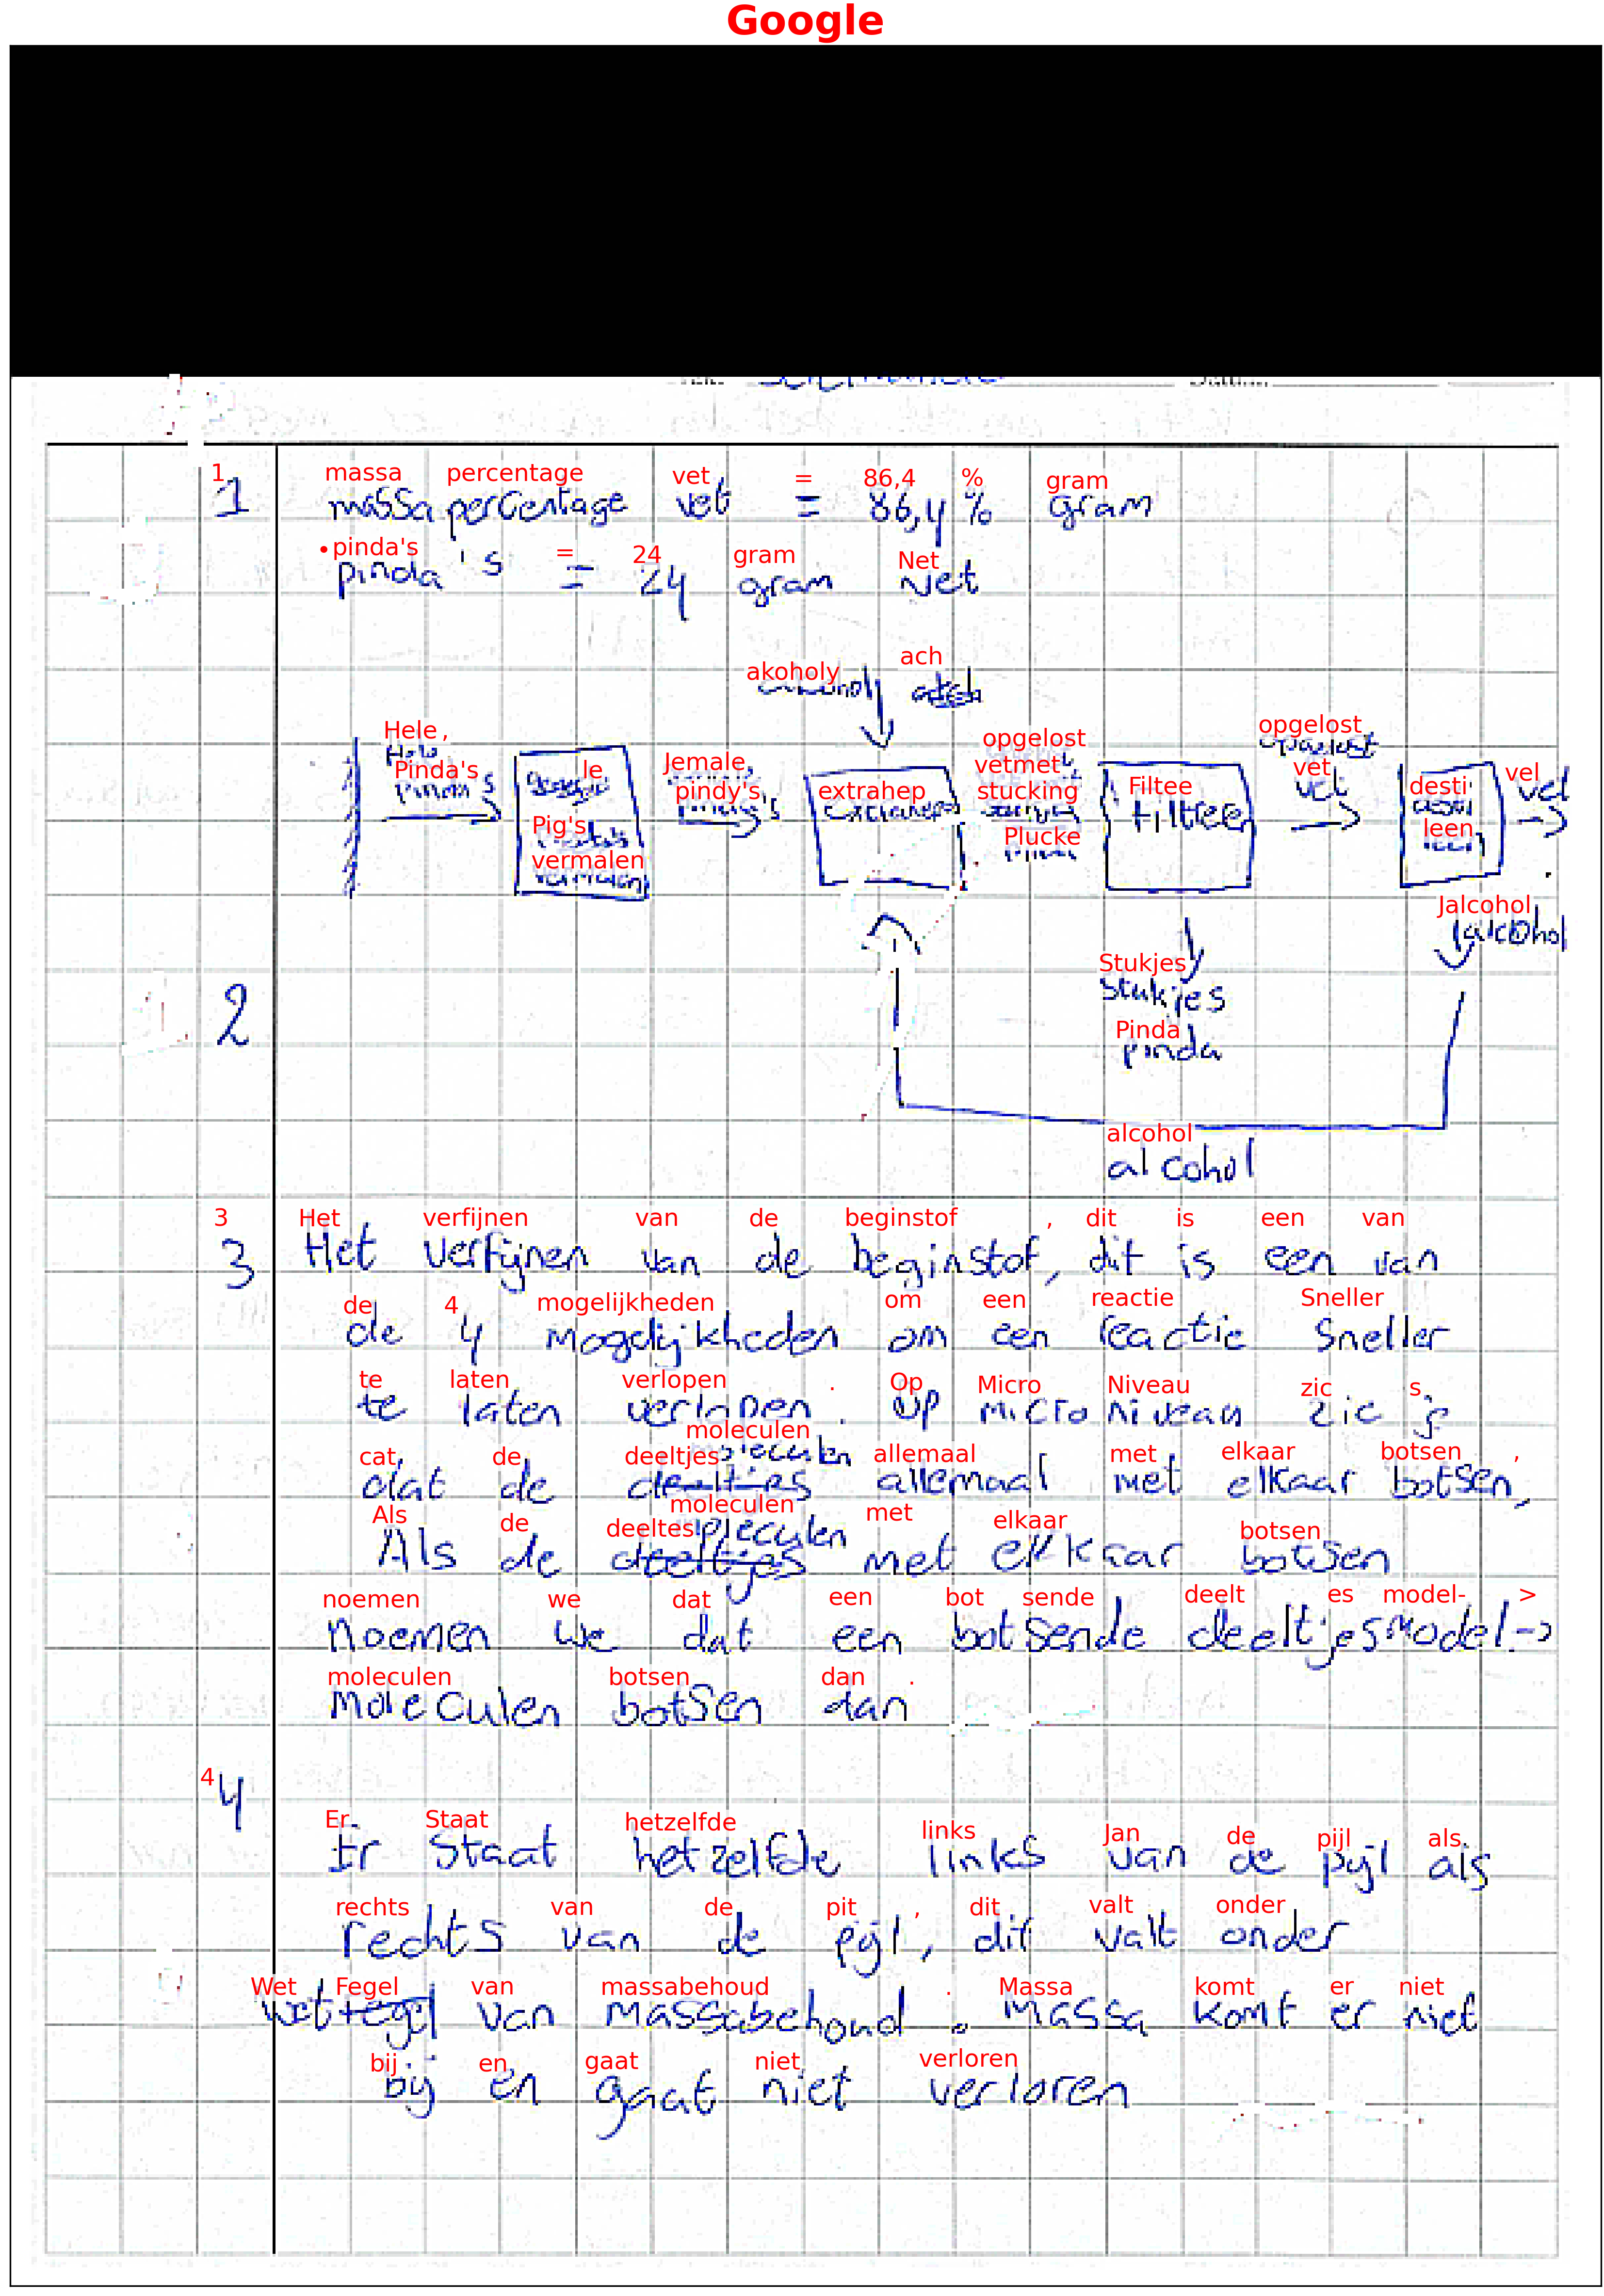 Google
1 massa percentage vet = 86,4 % gram
1 massa percentage vet = 86,4 % gram
• pinda's = 24 gram Net
pinda's = 24 gram vet
akoholy ach
alcohol
Hele, Jemale, opgelost opgelost
Hele opgelost
Pinda's le pindy's vetmet vet
pinda's vet
extrahep stucking Filtee desti vel
extraheer filtreer desti vet
Pig's Plucke leen
vermalen
vermalen
Jalcohol
alcohol
Stukjes
stukjes
2
Pinda
pinda
alcohol
alcohol
3 Het verfijnen van de beginstof , dit is een van
3 Het verfijnen van de beginstof, dit is een van
de 4 mogelijkheden om een reactie Sneller
de 4 mogelijkheden om een reactie Sneller
te laten verlopen . Op Micro Niveau zic s
te laten verlopen. Op Micro niveau zie je
moleculen
moleculen
cat de deeltjes allemaal met elkaar botsen ,
dat de deeltjes allemaal met elkaar botsen,
moleculen
moleculen
Als de deeltes met elkaar botsen
Als de deeltjes met elkaar botsen
noemen we dat een bot sende deelt es model- >
noemen we dat een botsende deeltjesmodel. ->
moleculen botsen dan .
moleculen botsen dan
4
4
Er Staat hetzelfde links Jan de pijl als
Er Staat hetzelfde links van de pijl als
rechts van de pit , dit valt onder
rechts van de pijl, dit valt onder
Wet Fegel van massabehoud . Massa komt er niet
wet regel van massabehoud. Massa komt er niet
bij en gaat niet verloren
bij en gaat niet verloren